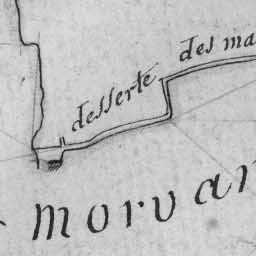 desserte des ma
morvan